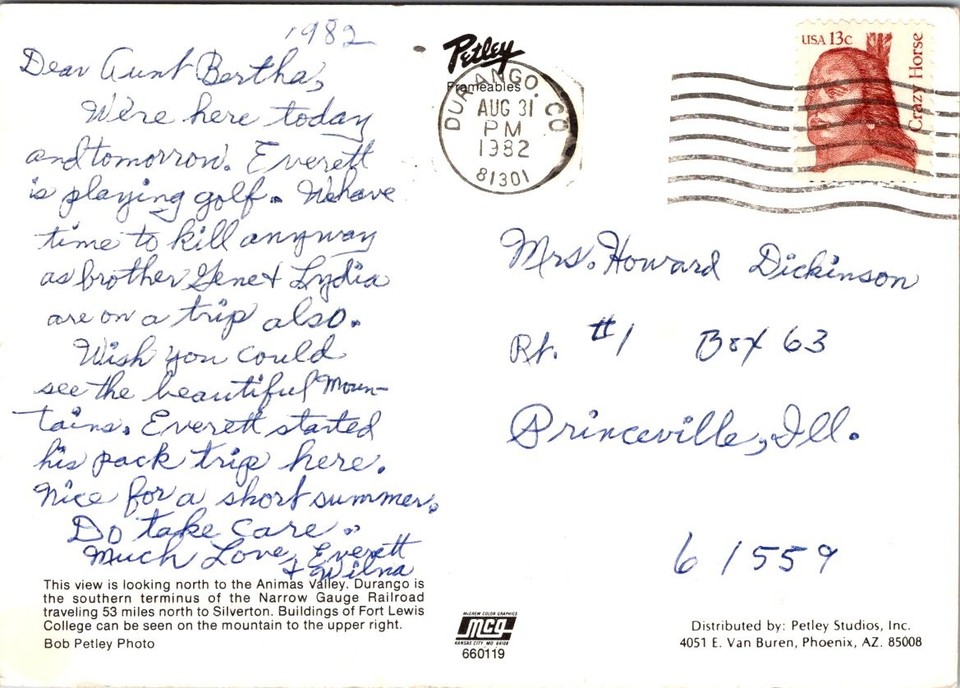 1982
Dear Aunt Bertha,
We're here today
and tomorrow. Everett
is playing golf. We have
time to kill anyway
as brother Gene & Lydia
are on a trip also.
Wish you could
see the beautiful Moun-
tains. Everett started
his pack trip here.
Nice for a short summer.
Do take care.
Much Love, Everett
& Wilna
This view is looking north to the Animas Valley. Durango is
the southern terminus of the Narrow Gauge Railroad
traveling 53 miles north to Silverton. Buildings of Fort Lewis
College can be seen on the mountain to the upper right.
Bob Petley Photo
Petley
Frameables
DURANGO, CO
AUG 31
PM
1982
81301
USA 13c
Crazy Horse
Mrs. Howard Dickinson
Rt. #1 Box 63
Princeville, Ill.
61559
McGREW COLOR GRAPHICS
mcg
KANSAS CITY, MO. 64108
660119
Distributed by: Petley Studios, Inc.
4051 E. Van Buren, Phoenix, AZ. 85008